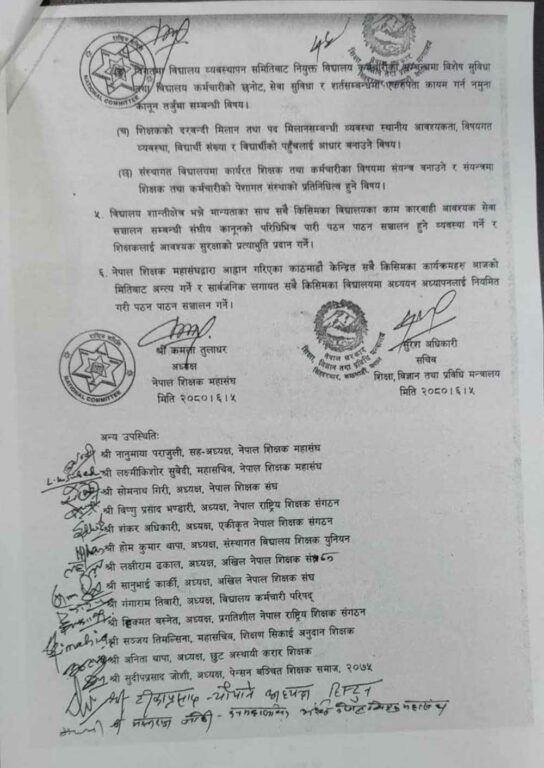 राष्ट्रिय समिति
NATIONAL COMMITTEE
विगतमा विद्यालय व्यवस्थापन समितिबाट नियुक्त विद्यालय कर्मचारीका सम्बन्धमा विशेष सुविधा
तथा विद्यालय कर्मचारीको छनोट, सेवा सुविधा र शर्तसम्बन्धमा एकरुपता कायम गर्न नमुना
कानून तर्जुमा सम्बन्धी विषय।
(च) शिक्षकको दरवन्दी मिलान तथा पद मिलानसम्बन्धी व्यवस्था स्थानीय आवश्यकता, विषयगत
व्यवस्था, विद्यार्थी संख्या र विद्यार्थीको पहुँचलाई आधार बनाउने विषय।
(छ) संस्थागत विद्यालयमा कार्यरत शिक्षक तथा कर्मचारीका विषयमा संयन्त्र बनाउने र संयन्त्रमा
शिक्षक तथा कर्मचारीको पेशागत संस्थाको प्रतिनिधित्व हुने विषय।
५. विद्यालय शान्तीक्षेत्र भन्ने मान्यताका साथ सबै किसिमका विद्यालयका काम कारवाही आवश्यक सेवा
सञ्चालन सम्बन्धी संघीय कानूनको परिधिभित्र पारी पठन पाठन सञ्चालन हुने व्यवस्था गर्ने र
शिक्षकलाई आवश्यक सुरक्षाको प्रत्याभुति प्रदान गर्ने।
६. नेपाल शिक्षक महासंघद्वारा आह्वान गरिएका काठमाडौ केन्द्रित सबै किसिमका कार्यक्रमहरु आजको
मितिबाट अन्त्य गर्ने र सार्वजनिक लगायत सबै किसिमका विद्यालयमा अध्ययन अध्यापनलाई नियमित
गरी पठन पाठन सञ्चालन गर्ने।
राष्ट्रिय समिति
NATIONAL COMMITTEE
श्री कमला तुलाधर
अध्यक्ष
नेपाल शिक्षक महासंघ
मिति २०८०।६।५
नेपाल सरकार
शिक्षा, विज्ञान तथा प्रविधि मन्त्रालय
सिंहदरबार, काठमाडौं, नेपाल
सुरेश अधिकारी
सचिव
शिक्षा, विज्ञान तथा प्रविधि मन्त्रालय
मिति २०८०।६।५
अन्य उपस्थितिः
श्री नानुमाया पराजुली, सह-अध्यक्ष, नेपाल शिक्षक महासंघ
श्री लक्ष्मीकिशोर सुबेदी, महासचिव, नेपाल शिक्षक महासंघ
श्री सोमनाथ गिरी, अध्यक्ष, नेपाल शिक्षक संघ
श्री विष्णु प्रसाद भण्डारी, अध्यक्ष, नेपाल राष्ट्रिय शिक्षक संगठन
श्री शंकर अधिकारी, अध्यक्ष, एकीकृत नेपाल शिक्षक संगठन
श्री होम कुमार थापा, अध्यक्ष, संस्थागत विद्यालय शिक्षक युनियन
श्री लक्षीराम ढकाल, अध्यक्ष, अखिल नेपाल शिक्षक
श्री सानुभाई कार्की, अध्यक्ष, अखिल नेपाल शिक्षक संघ
श्री गंगाराम तिवारी, अध्यक्ष, विद्यालय कर्मचारी परिषद्
श्री हिक्मत बस्नेत, अध्यक्ष, प्रगतिशील नेपाल राष्ट्रिय शिक्षक संगठन
श्री सञ्जय तिमल्सिना, महासचिव, शिक्षण सिकाई अनुदान शिक्षक
श्री अनिता थापा, अध्यक्ष, छुट अस्थायी करार शिक्षक
श्री सुदीपप्रसाद जोशी, अध्यक्ष, पेन्सन बञ्चित शिक्षक समाज, २०७५